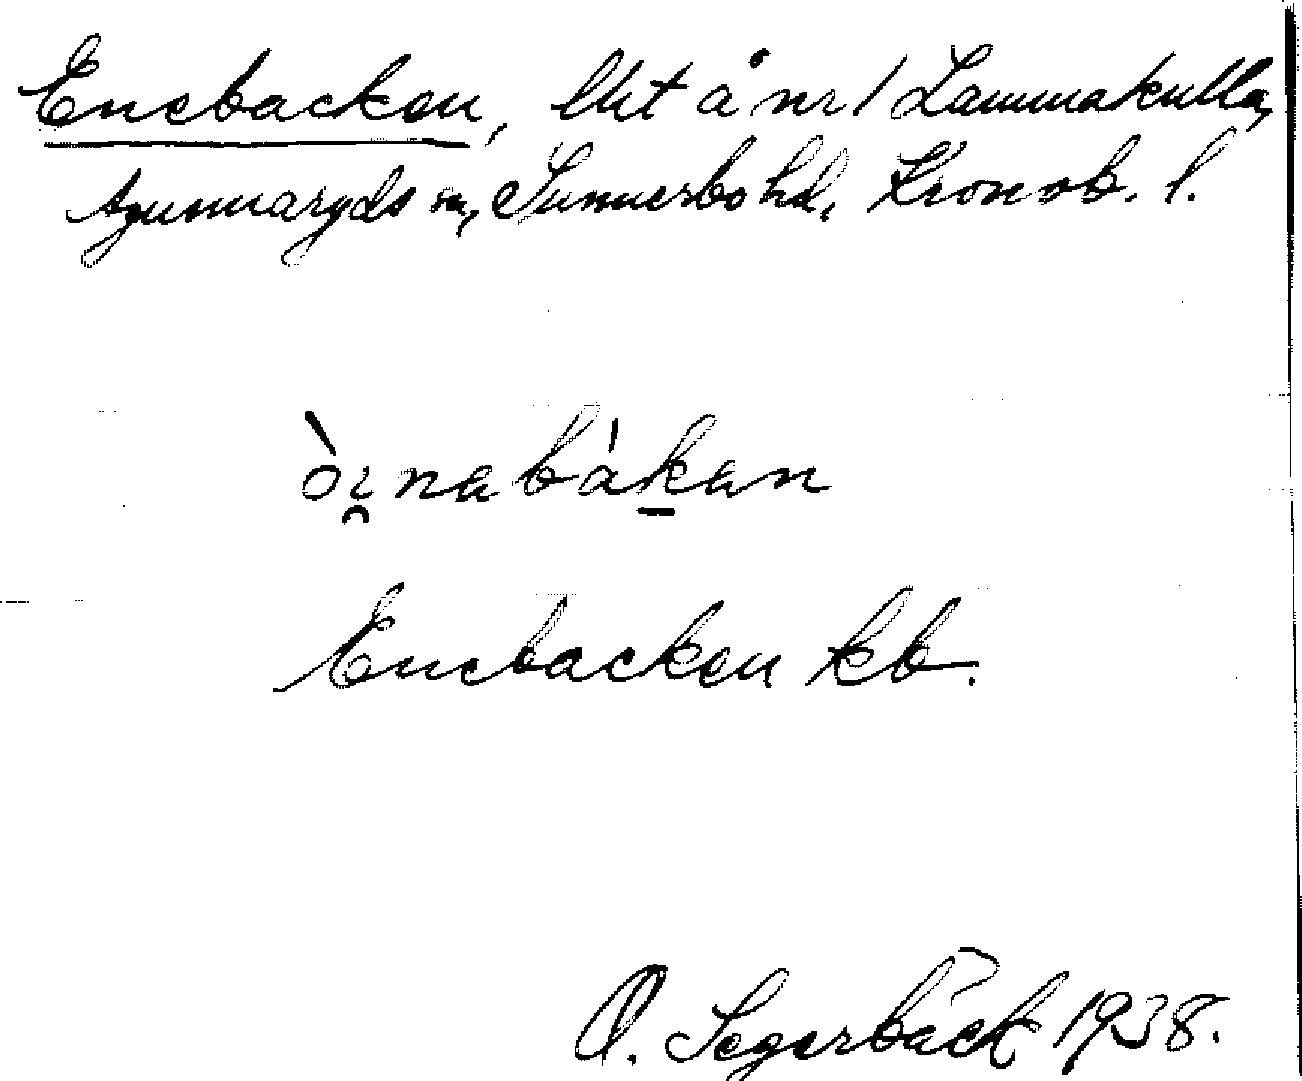 Enebacken, lht å nr 1 Lammakulla,
Agunnaryds sn, Sunnerbo hd, Kronob. l.
òi̯nabákan
Enebacken kb.
O. Segerbäck 1938.